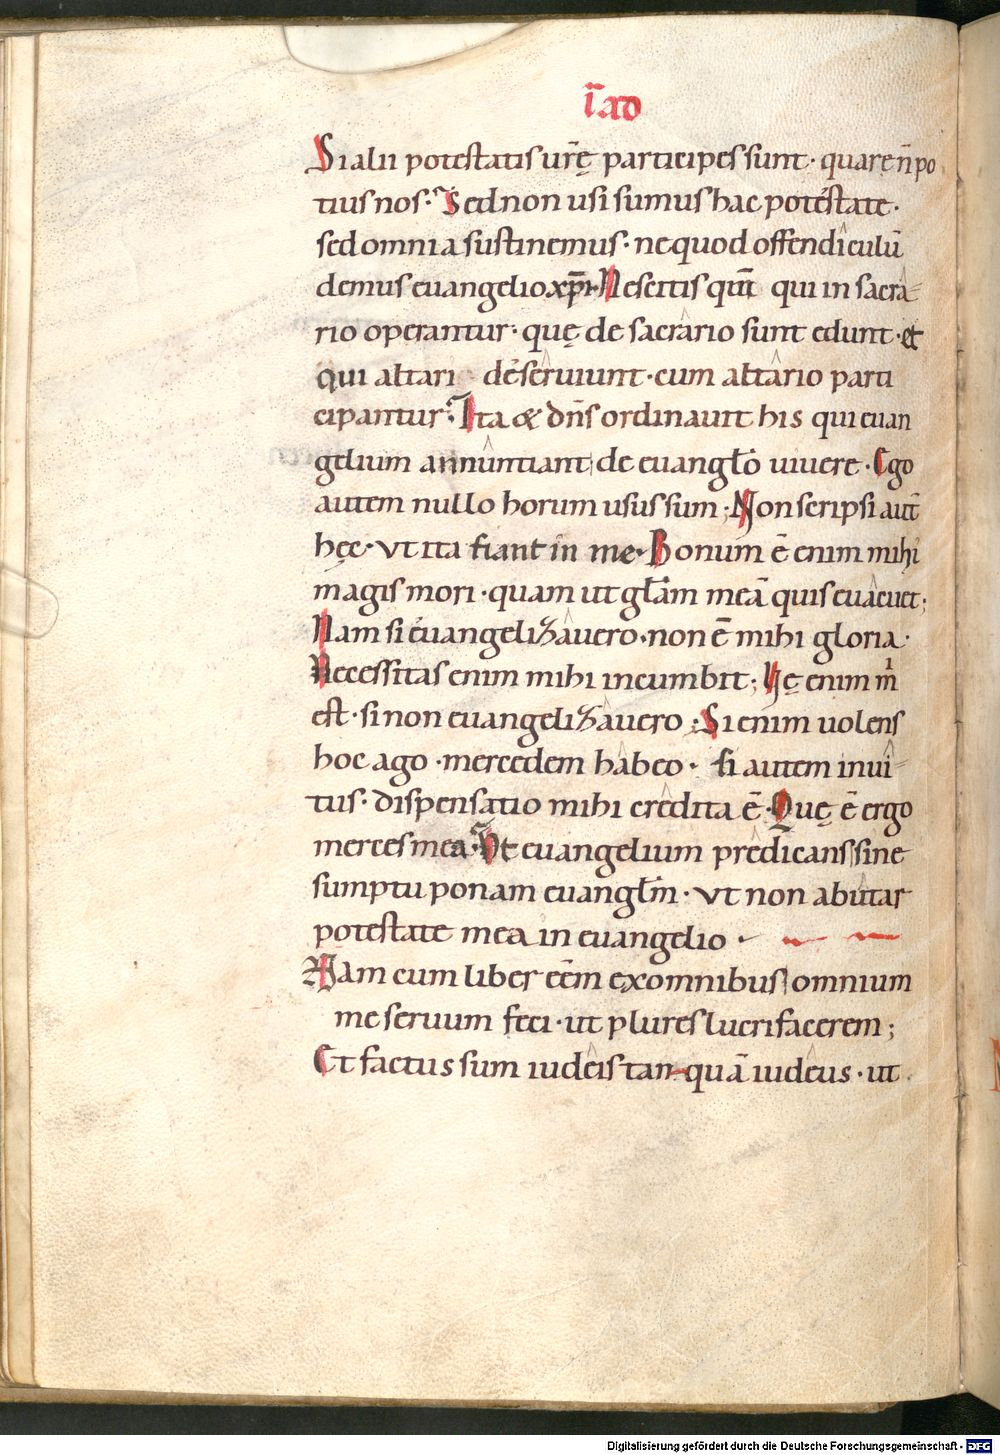 ī ad
Si alii potestatis ur̄ę participes sunt · quare n̄ po
tius nos · Sed non usi sumus hac potestate ·
sed omnia sustinemus · ne quod offendiculū
demus euangelio xp̄i · Nescitis qm̄ qui in sacra-
rio operantur · quę de sacrario sunt edunt · et
qui altari deseruiunt · cum altario parti
cipantur · Ita & dn̄s ordinauit his qui euan
gelium annuntiant de euangl̄o uiuere · Ego
autem nullo horum usus sum · Non scripsi aut̄
hęc · vt ita fiant in me · Bonum ē enim mihi
magis mori · quam ut gl̄am meā quis euacuet ;
Nam si euangelizauero · non ē mihi gloria ·
Necessitas enim mihi incumbit ; Vę enim m̄
est · si non euangelizauero ; Si enim uolens
hoc ago · mercedem habeo · si autem inui-
tus · dispensatio mihi credita ē · Quę ē ergo
merces mea · Vt euangelium predicans sine
sumptu ponam euangl̄m · vt non abutar
potestate mea in euangelio ·
Nam cum liber eēm ex omnibus omnium
me seruum feci · ut plures lucrifacerem ;
Et factus sum iudeis tan-quā iudeus · ut
Digitalisierung gefördert durch die Deutsche Forschungsgemeinschaft - DFG